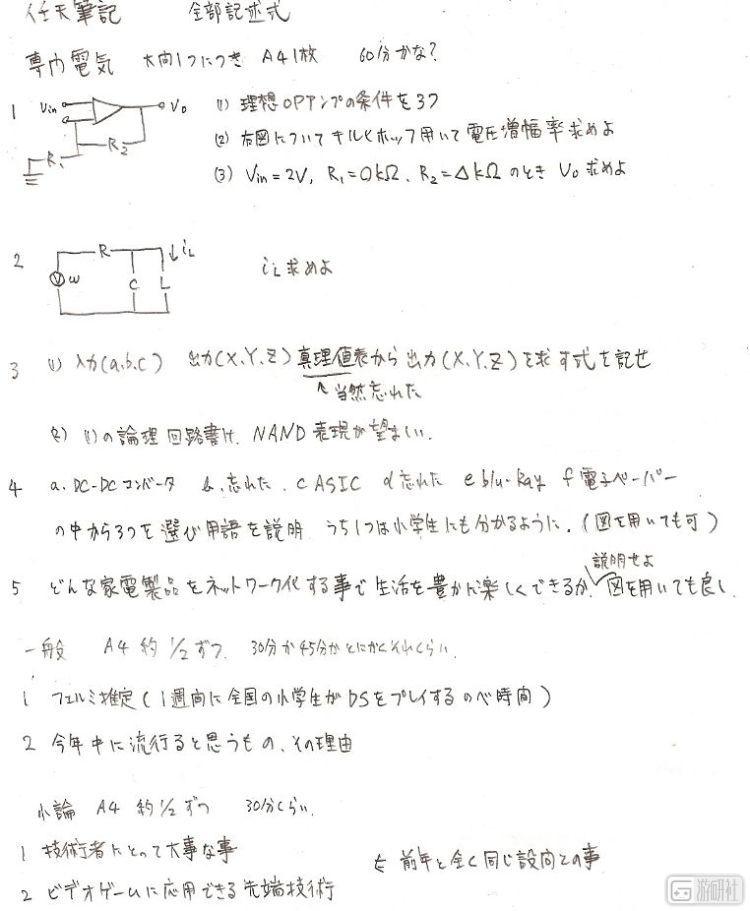 任天筆記 全部記述式
専門電気 大問1つにつき A4 1枚 60分かな?
1 Vin Vo R2 R1
(1) 理想OPアンプの条件を3つ
(2) 右図についてキルヒホッフ用いて電圧増幅率求めよ
(3) Vin=2V, R1=○kΩ, R2=△kΩのとき Vo求めよ
2 R iL ω C L
iL求めよ
3 (1) 入力(a,b,c) 出力(X,Y,Z) 真理値表から出力(X,Y,Z)を求す式を記せ
当然忘れた
(2) (1)の論理回路書け. NAND表現が望ましい.
4 a. DC-DCコンバータ b.忘れた. c ASIC d忘れた e blu-Ray f 電子ペーパー
の中から3つを選び用語を説明 うち1つは小学生にも分かるように. (図を用いても可)
説明せよ
5 どんな家電製品をネットワーク化する事で生活を豊かに楽しくできるか. 図を用いても良し.
一般 A4 約1/2ずつ. 30分か45分かとにかくそれくらい.
1 フェルミ推定(1週間に全国の小学生がDSをプレイするのべ時間)
2 今年中に流行ると思うもの、その理由
小論 A4 約1/2ずつ 30分くらい.
1 技術者にとって大事な事
前年と全く同じ設問との事
2 ビデオゲームに応用できる先端技術
游研社